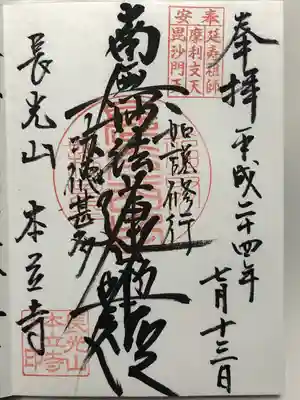 奉拝 平成二十四年
七月十三日
奉延寿祖師
摩利支天
安毘沙門天
如説修行
南無妙法蓮華経
功徳甚多
長光山 本立寺
長光山
本立寺
印